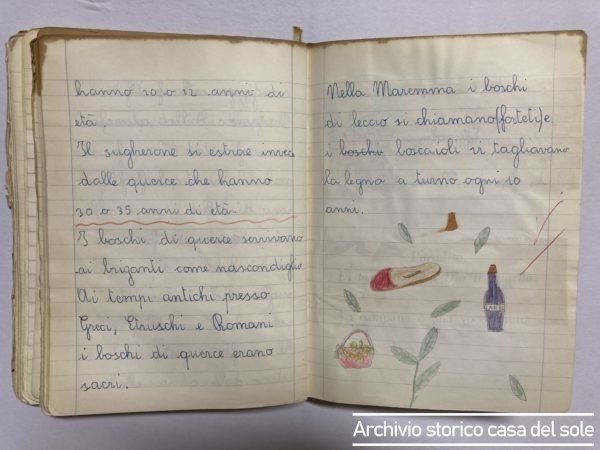 hanno 10 o 12 anni di
età.
Il sugherone si estrae invece
dalle querce che hanno
30 o 35 anni di età.
I boschi di querce servivano
ai briganti come nascondiglio.
Ai tempi antichi presso
Greci, Etruschi e Romani
i boschi di querce erano
sacri.
Nella Maremma i boschi
di leccio si chiamano (forteti) e
i boschi boscaioli vi tagliavano
la legna a turno ogni 10
anni.
Archivio storico casa del sole